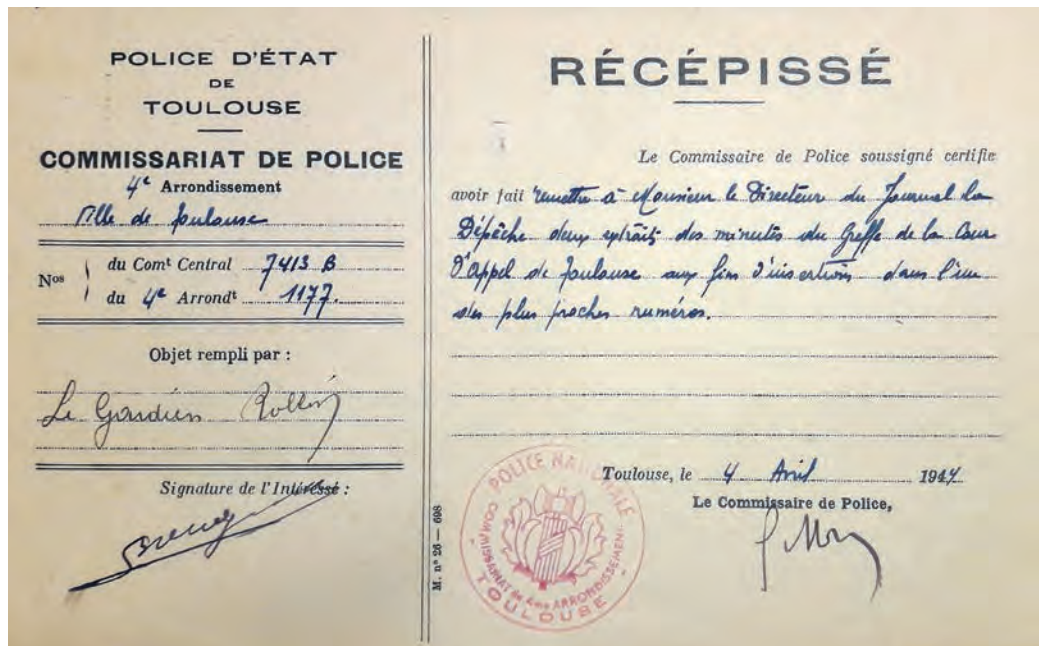 POLICE D'ÉTAT
DE
TOULOUSE
COMMISSARIAT DE POLICE
4e Arrondissement
Ville de Toulouse
Nos
du Comt Central 7413 B
du 4e Arrondt 1177
Objet rempli par :
Le Gardien
Signature de l'Intéressé :
RÉCÉPISSÉ
Le Commissaire de Police soussigné certifie
avoir fait remettre à Monsieur le Directeur du Journal La
Dépêche deux extraits des minutes du Greffe de la Cour
D'Appel de Toulouse aux fins d'insertion dans l'un
des plus proches numéros.
Toulouse, le 4 Avril 1944
Le Commissaire de Police,
POLICE NATIONALE
COMMISSARIAT du 4me ARRONDISSEMENT
TOULOUSE
M. nº 26 — 698